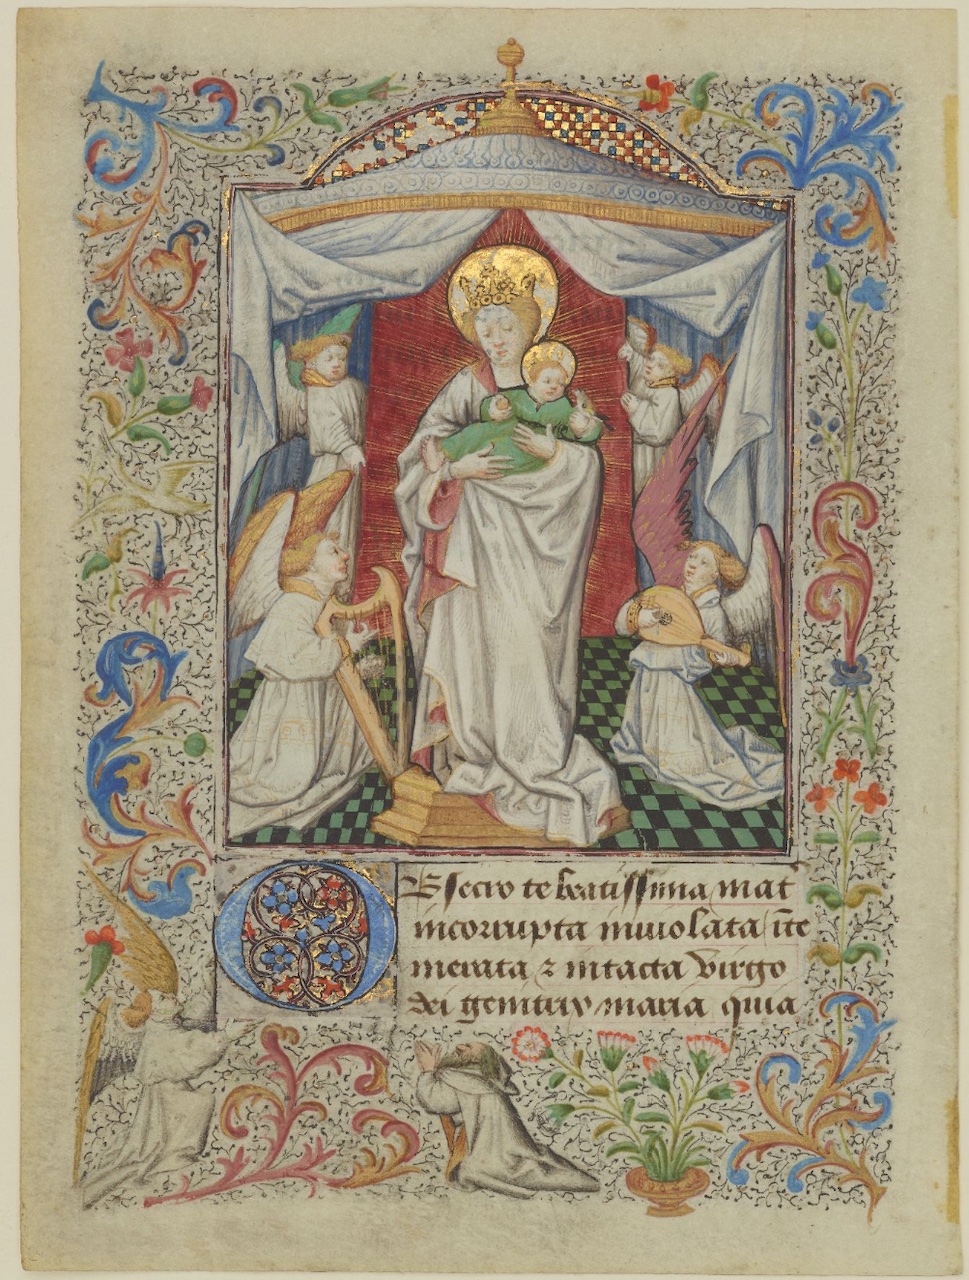 OBsecro te beatissima mat
incorrupta inuiolata īte
merata ⁊ intacta Virgo
dei genitrix maria quia